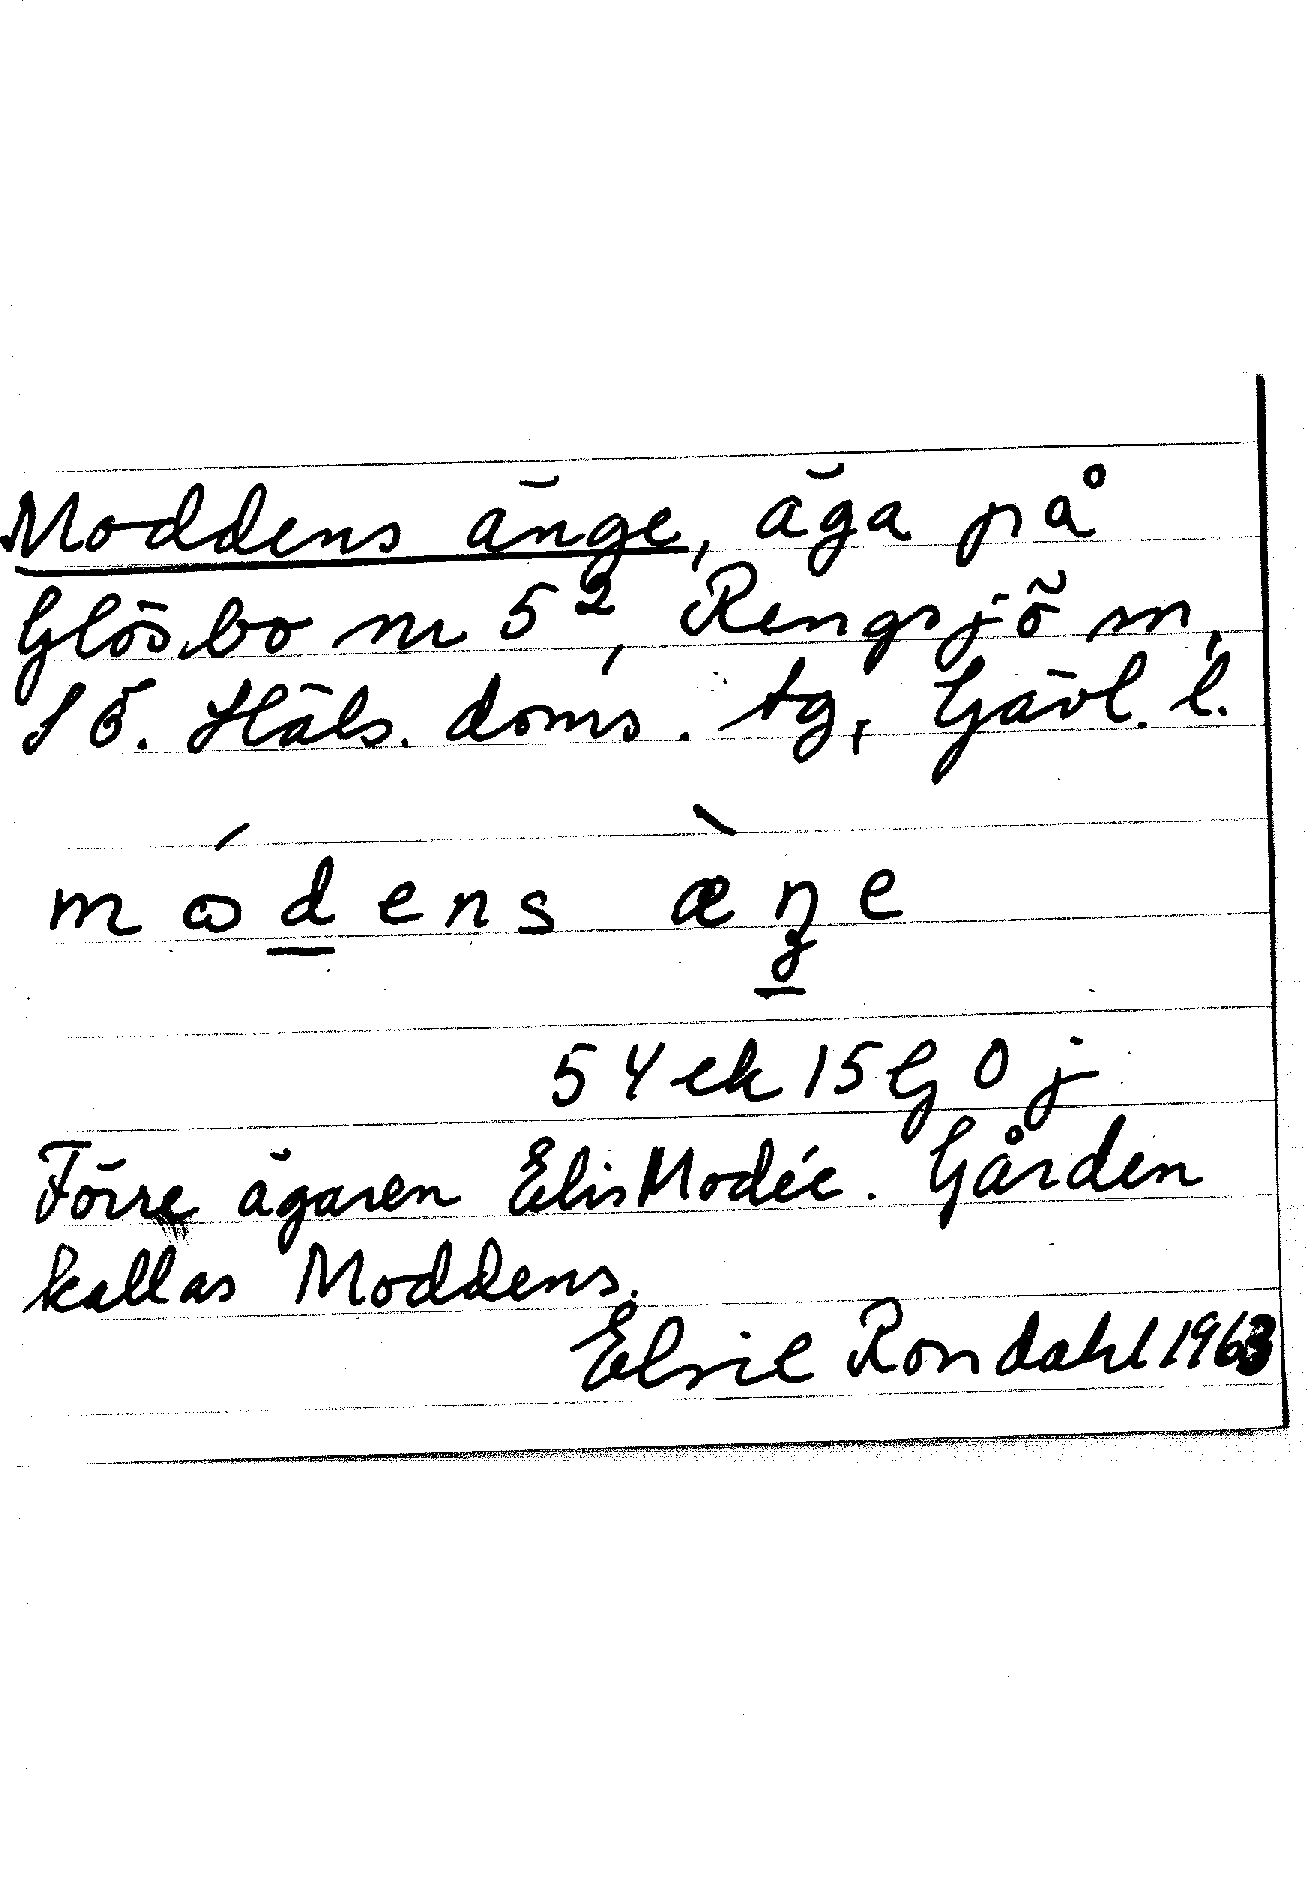 Moddens änge, äga på
Glösbo nr 5², Rengsjö sn,
SÖ. Häls. doms. tg, Gävl. l.
mɷ́dens æ̀ŋe
54 ek 15 G 0 j
Förre ägaren Elis Modée. Gården
kallas Moddens.
Elsie Rondahl 1963